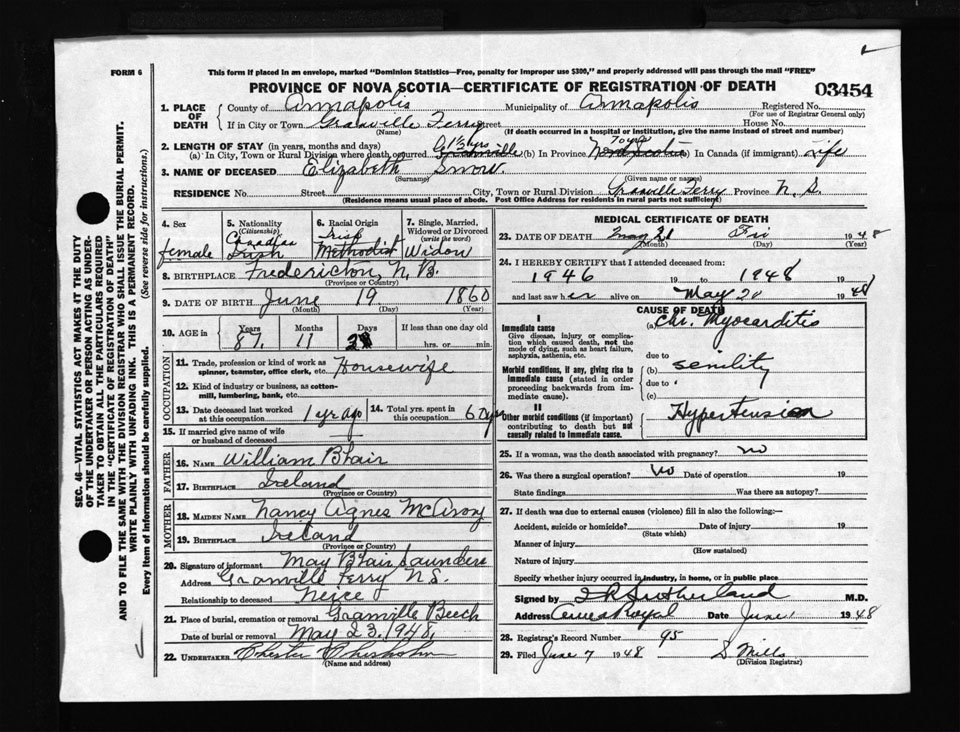 FORM 6
This form if placed in an envelope, marked "Dominion Statistics—Free, penalty for improper use $300," and properly addressed will pass through the mail "FREE"
PROVINCE OF NOVA SCOTIA—CERTIFICATE OF REGISTRATION OF DEATH
03454
1. PLACE OF DEATH County of Annapolis Municipality of Annapolis Registered No.
(For use of Registrar General only)
If in City or Town Granville Ferry Street House No.
(Name) (If death occurred in a hospital or institution, give the name instead of street and number)
2. LENGTH OF STAY (in years, months and days)
(a) In City, Town or Rural Division where death occurred 1½ yrs (b) In Province 70 yrs In Canada (if immigrant) Life
3. NAME OF DECEASED Elizabeth Snow.
(Surname) (Given name or names)
RESIDENCE No. Street City, Town or Rural Division Granville Ferry Province N. S.
(Residence means usual place of abode. Post Office Address for residents in rural parts not sufficient)
4. Sex
female
5. Nationality
(Citizenship)
Canadian
Irish
6. Racial Origin
Irish
Methodist
7. Single, Married, Widowed or Divorced
(write the word)
Widow
8. BIRTHPLACE Fredericton, N. B.
(Province or Country)
9. DATE OF BIRTH June 19 1860
(Month) (Day) (Year)
10. AGE in Years Months Days If less than one day old
87 11 hrs. or min.
OCCUPATION
11. Trade, profession or kind of work as spinner, teamster, office clerk, etc. Housewife
12. Kind of industry or business, as cotton-mill, lumbering, bank, etc.
13. Date deceased last worked at this occupation 1 yr ago
14. Total yrs. spent in this occupation 60 yrs
15. If married give name of wife or husband of deceased
FATHER
16. NAME William Blair
17. BIRTHPLACE Ireland
(Province or Country)
MOTHER
18. MAIDEN NAME Nancy Agnes McAvoy
19. BIRTHPLACE Ireland
(Province or Country)
20. Signature of informant May Blair Saunders
Address Granville Ferry N.S.
Relationship to deceased Neice
21. Place of burial, cremation or removal Granville Beech
Date of burial or removal May 23, 1948
22. UNDERTAKER Chester Chisholm
(Name and address)
MEDICAL CERTIFICATE OF DEATH
23. DATE OF DEATH May 21 Fri 1948
(Month) (Day) (Year)
24. I HEREBY CERTIFY that I attended deceased from:
1946 19 to 1948 19
and last saw her alive on May 20 1948
CAUSE OF DEATH
I
Immediate cause
Give disease, injury or complication which caused death, not the mode of dying, such as heart failure, asphyxia, asthenia, etc.
(a) Chr. Myocarditis
due to
Morbid conditions, if any, giving rise to immediate cause (stated in order proceeding backwards from immediate cause).
(b) senility
due to
(c)
II
Other morbid conditions (if important) contributing to death but not causally related to immediate cause.
Hypertension
25. If a woman, was the death associated with pregnancy? no
26. Was there a surgical operation? No Date of operation 19
State findings Was there an autopsy?
27. If death was due to external causes (violence) fill in also the following:—
Accident, suicide or homicide? Date of injury 19
(State which)
Manner of injury
(How sustained)
Nature of injury
Specify whether injury occurred in industry, in home, or in public place
Signed by Sutherland M.D.
Address Anna Royal Date June 1 1948
28. Registrar's Record Number 95
29. Filed June 7 1948 S Mills
(Division Registrar)
SEC. 46—VITAL STATISTICS ACT MAKES IT THE DUTY
OF THE UNDERTAKER OR PERSON ACTING AS UNDER-
TAKER TO OBTAIN ALL THE PARTICULARS REQUIRED
IN THE "CERTIFICATE OF REGISTRATION OF DEATH"
AND TO FILE THE SAME WITH THE DIVISION REGISTRAR WHO SHALL ISSUE THE BURIAL PERMIT.
WRITE PLAINLY WITH UNFADING INK. THIS IS A PERMANENT RECORD.
Every item of information should be carefully supplied. (See reverse side for instructions.)